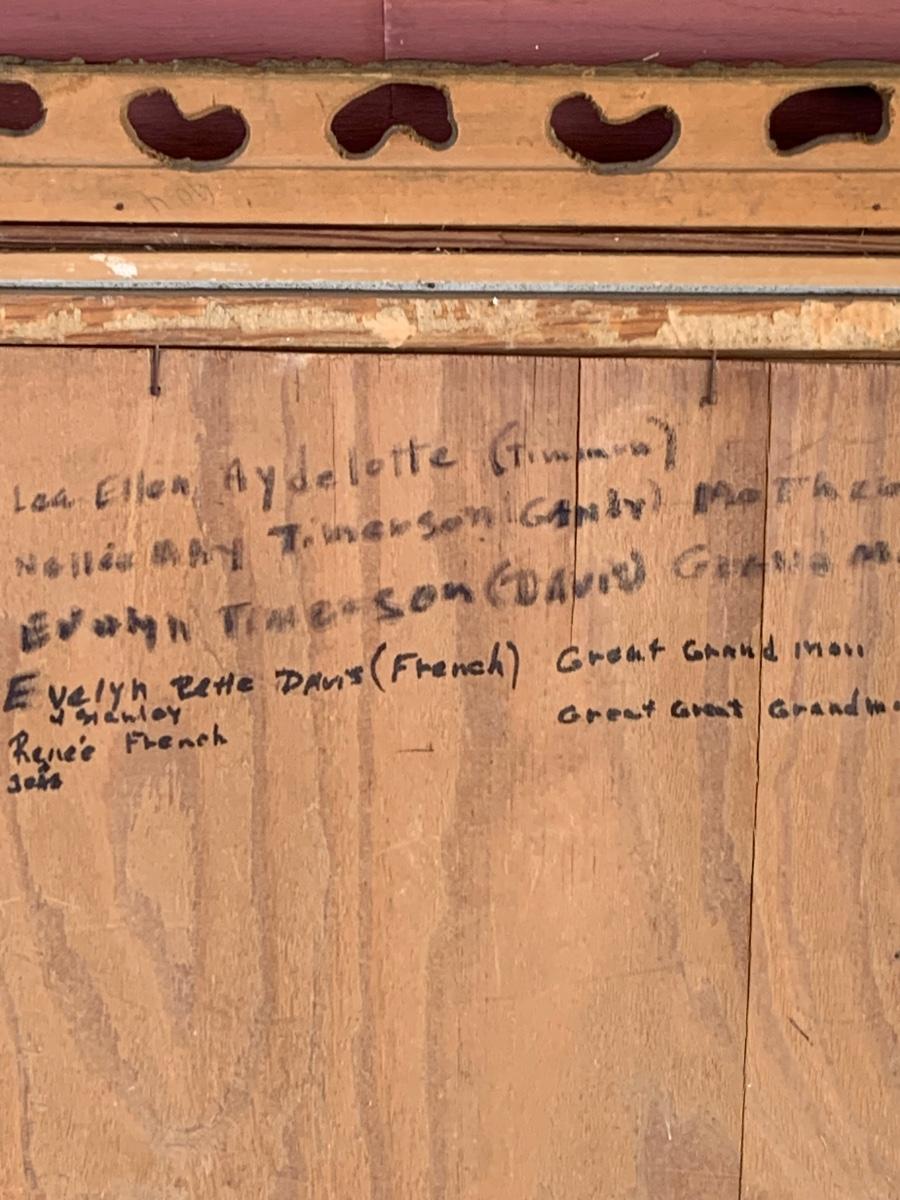 Lea Ellen Aydelotte (Timmon)
Nellie May Timerson (Ganby) Mother
Evelyn Timerson (DAVIS) Grand M
Evelyn Bette DAvis (French) Great Grand mon
& Stanley Great Great Grandmo
Reneé French